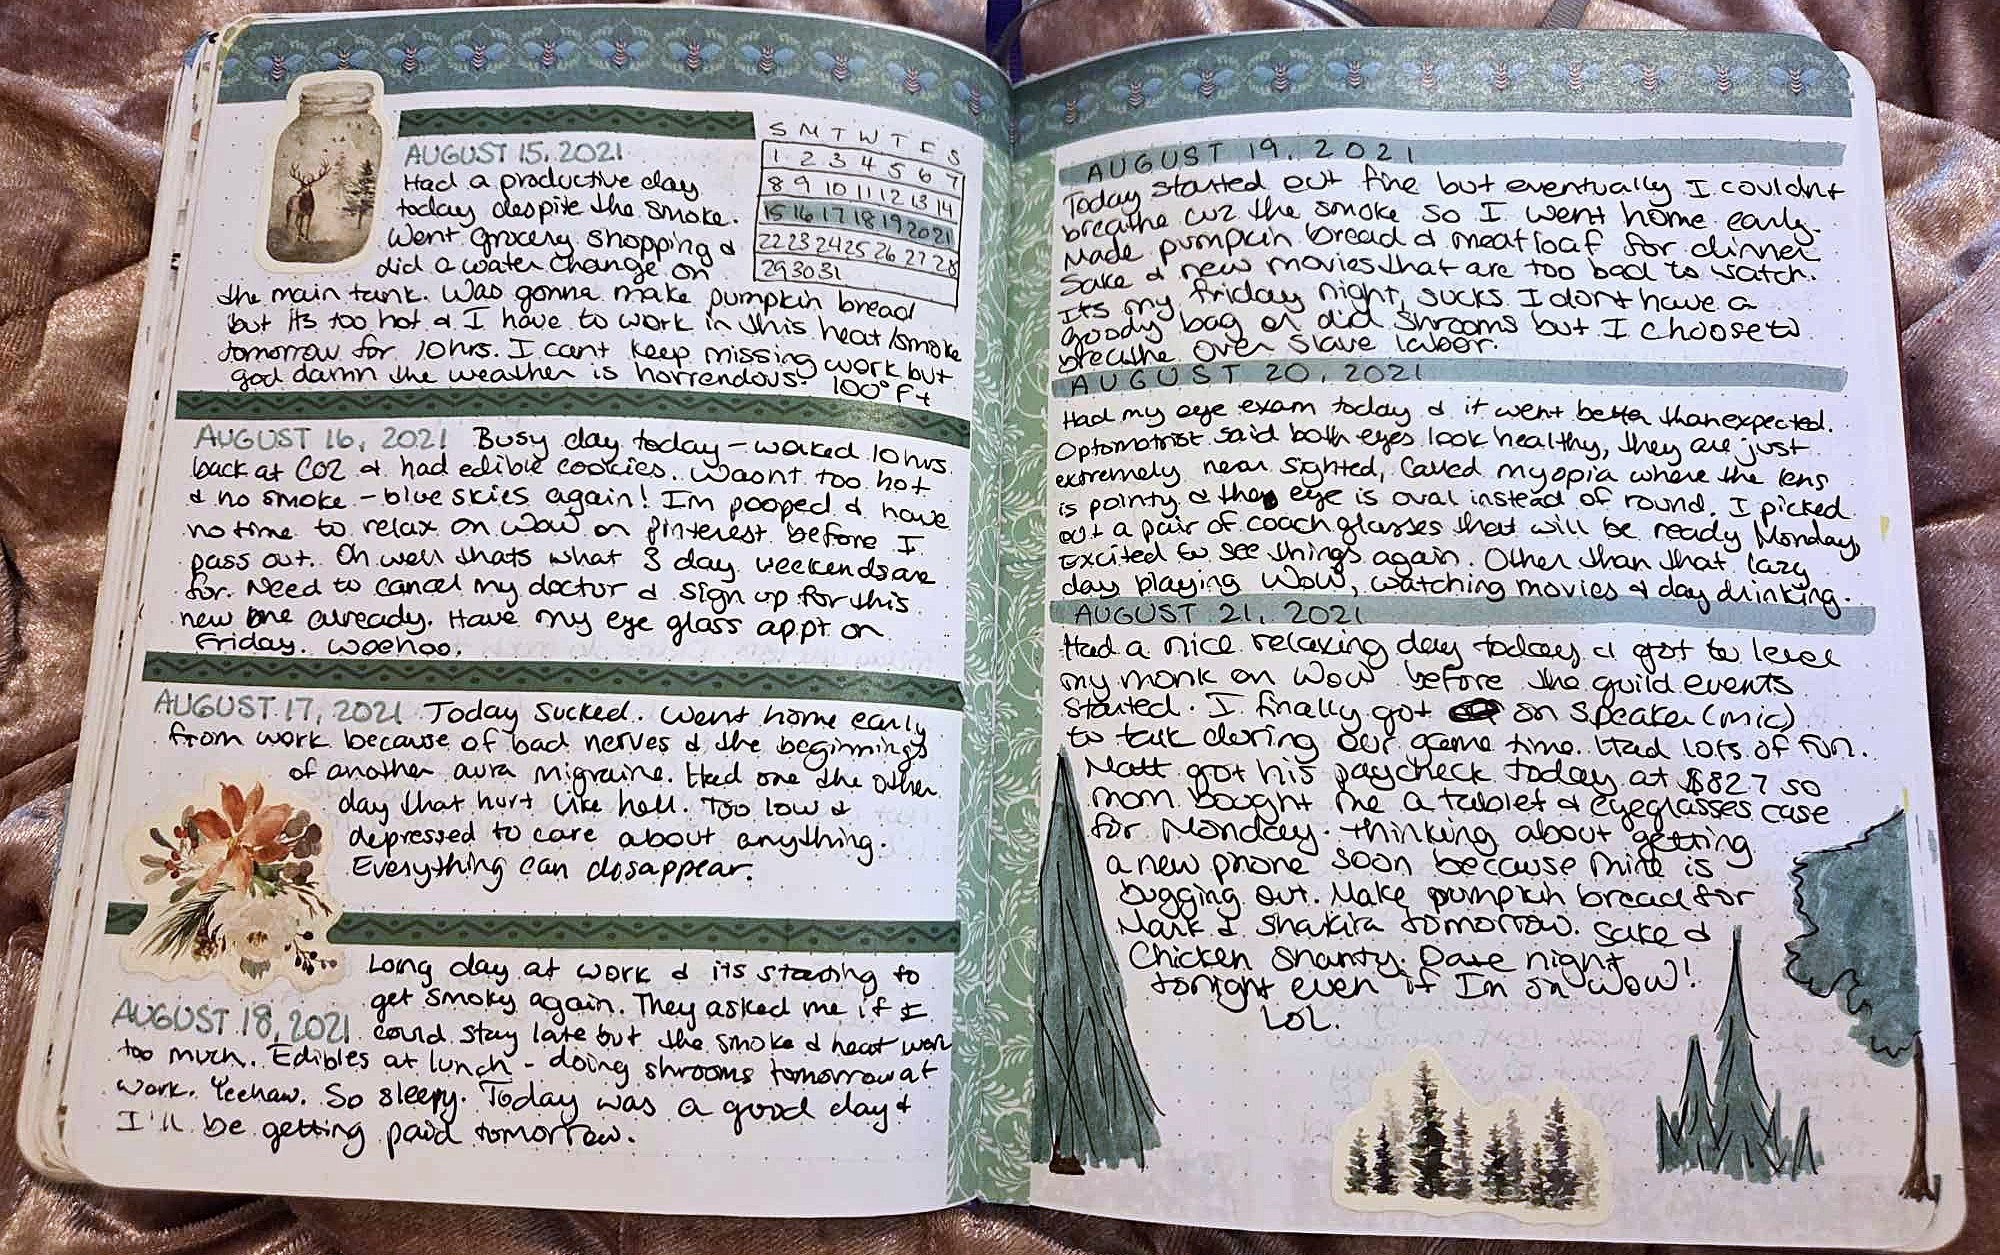 S M T W T F S
1 2 3 4 5 6 7
8 9 10 11 12 13 14
15 16 17 18 19 20 21
22 23 24 25 26 27 28
29 30 31
AUGUST 15, 2021
Had a productive day
today despite the smoke.
Went grocery shopping &
did a water change on
the main tank. Was gonna make pumpkin bread
but its too hot & I have to work in this heat/smoke
tomorrow for 10hrs. I cant keep missing work but
god damn the weather is horrendous. 100°F+
AUGUST 16, 2021 Busy day today - worked 10hrs
back at CO2 & had edible cookies. Wasnt too hot
& no smoke - blue skies again! Im pooped & have
no time to relax on WoW or pinterest before I
pass out. Oh well thats what 3 day weekends are
for. Need to cancel my doctor & sign up for this
new one already. Have my eye glass appt on
Friday. Woohoo.
AUGUST 17, 2021 Today sucked. Went home early
from work because of bad nerves & the beginnings
of another aura migraine. Had one the other
day that hurt like hell. Too low &
depressed to care about anything.
Everything can dissappear.
Long day at work & its starting to
get smoky again. They asked me if I
AUGUST 18, 2021 could stay late but the smoke & heat were
too much. Edibles at lunch - doing shrooms tomorrow at
work. Yeehaw. So sleepy. Today was a good day &
I'll be getting paid tomorrow.
AUGUST 19, 2021
Today started out fine but eventually I couldnt
breathe cuz the smoke so I went home early.
Made pumpkin bread & meatloaf for dinner
Sake & new movies that are too bad to watch.
Its my friday night, sucks I dont have a
goody bag or did shrooms but I choose to
breathe over slave labor.
AUGUST 20, 2021
Had my eye exam today & it went better than expected.
Optomotrist said both eyes look healthy, they are just
extremely near sighted, called myopia where the lens
is pointy & the eye is oval instead of round. I picked
out a pair of coach glasses that will be ready Monday,
Excited to see things again. Other than that lazy
day playing WoW, watching movies & day drinking.
AUGUST 21, 2021
Had a nice relaxing day today & got to level
my monk on WoW before the guild events
started. I finally got on speaker (mic)
to talk during our game time. Had lots of fun.
Matt got his paycheck today at $827 so
mom bought me a tablet & eyeglasses case
for Monday. Thinking about getting
a new phone soon because mine is
bugging out. Make pumpkin bread for
Mark & Shakira tomorrow. Sake &
Chicken Shanty. Date night
tonight even if Im on WoW!
LOL.